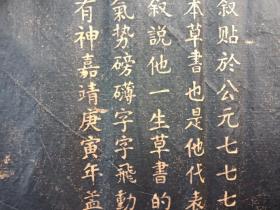 叙贴於公元七七七
本草書也是他代表
叙説他一生草書的
氣势磅礴字字飛動
有神嘉靖庚寅年孟